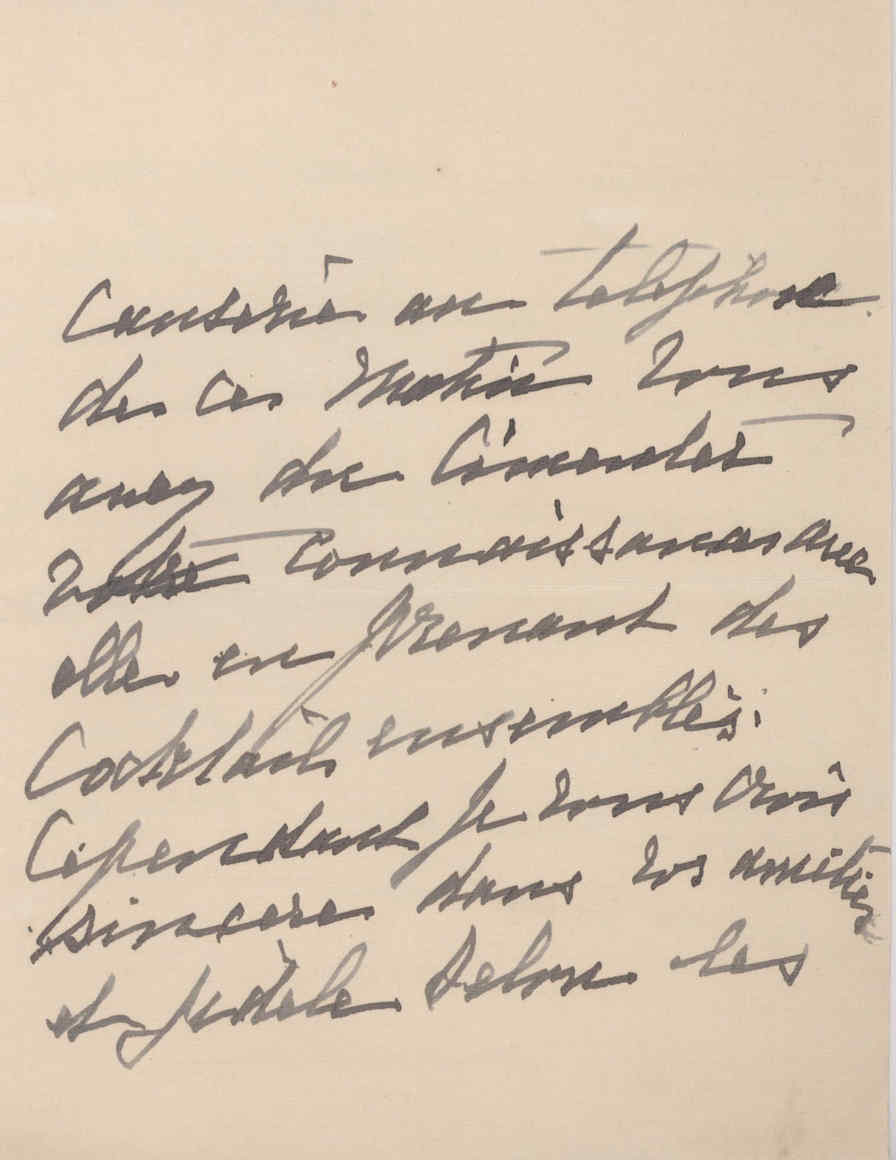 Causerie au telephone
de ce Matin vous
avez du Cimenter
votre connaissances avec
elle en prenant des
Cocktails ensembles.
Cependant je vous crois
sincere dans vos amitiés
et fidèle selon les